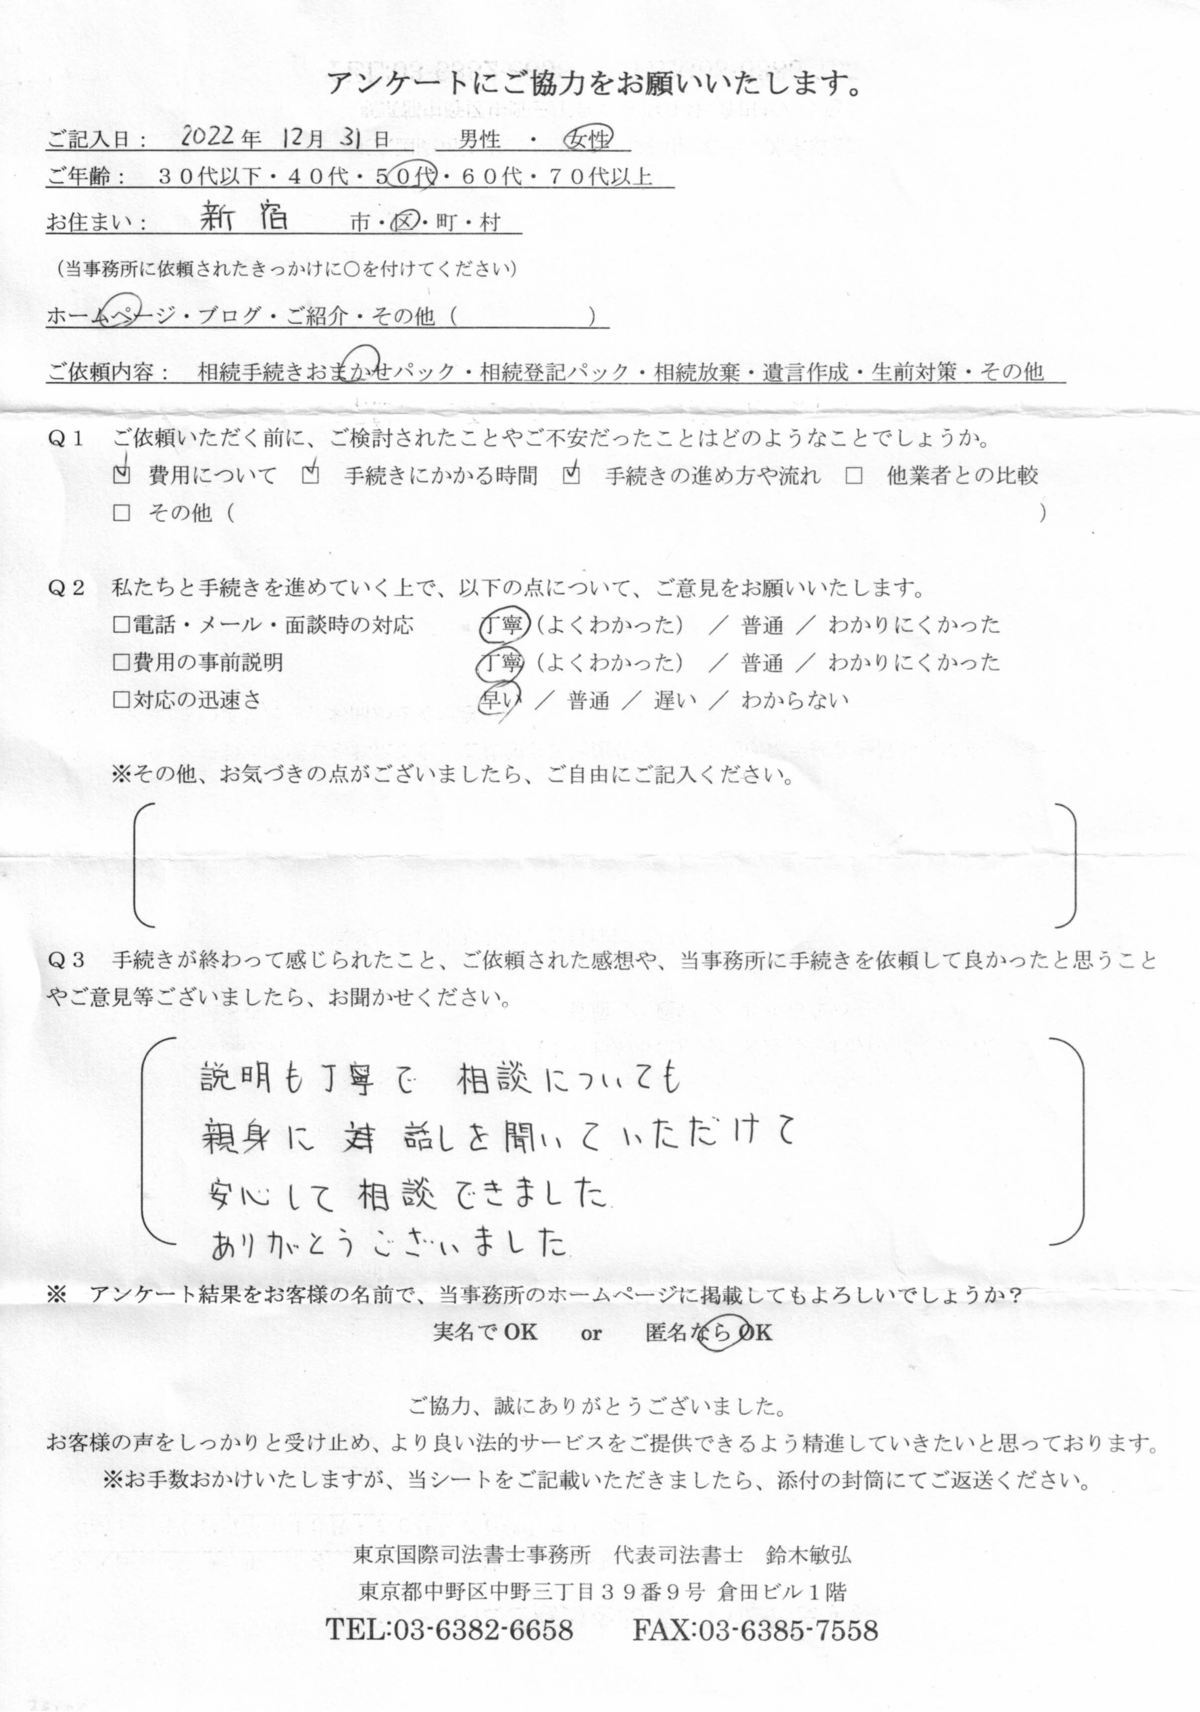 アンケートにご協力をお願いいたします。
ご記入日： 2022年 12月 31日 男性 ・ 女性
ご年齢： ３０代以下・４０代・５０代・６０代・７０代以上
お住まい： 新宿 市・区・町・村
（当事務所に依頼されたきっかけに〇を付けてください）
ホームページ・ブログ・ご紹介・その他（ ）
ご依頼内容： 相続手続きおまかせパック・相続登記パック・相続放棄・遺言作成・生前対策・その他
Ｑ１ ご依頼いただく前に、ご検討されたことやご不安だったことはどのようなことでしょうか。
☑ 費用について ☑ 手続きにかかる時間 ☑ 手続きの進め方や流れ □ 他業者との比較
□ その他（ ）
Ｑ２ 私たちと手続きを進めていく上で、以下の点について、ご意見をお願いいたします。
□電話・メール・面談時の対応 丁寧（よくわかった） ／ 普通 ／ わかりにくかった
□費用の事前説明 丁寧（よくわかった） ／ 普通 ／ わかりにくかった
□対応の迅速さ 早い ／ 普通 ／ 遅い ／ わからない
※その他、お気づきの点がございましたら、ご自由にご記入ください。
Ｑ３ 手続きが終わって感じられたこと、ご依頼された感想や、当事務所に手続きを依頼して良かったと思うこと
やご意見等ございましたら、お聞かせください。
説明も丁寧で 相談についても
親身に 話しを聞いていただけて
安心して相談できました
ありがとうございました
※ アンケート結果をお客様の名前で、当事務所のホームページに掲載してもよろしいでしょうか？
実名でOK or 匿名ならOK
ご協力、誠にありがとうございました。
お客様の声をしっかりと受け止め、より良い法的サービスをご提供できるよう精進していきたいと思っております。
※お手数おかけいたしますが、当シートをご記載いただきましたら、添付の封筒にてご返送ください。
東京国際司法書士事務所 代表司法書士 鈴木敏弘
東京都中野区中野三丁目３９番９号 倉田ビル１階
TEL:03-6382-6658 FAX:03-6385-7558